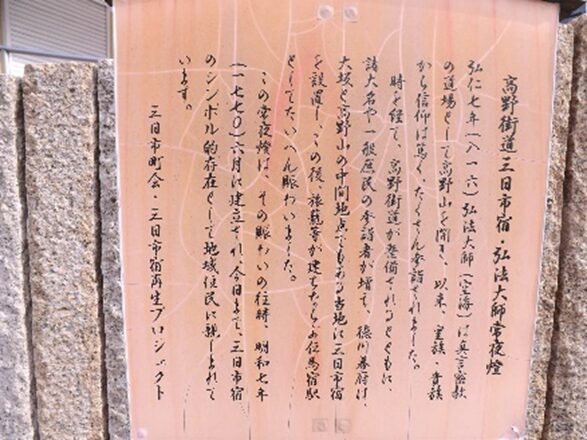 高野街道三日市宿・弘法大師常夜燈
弘仁七年（八一六）弘法大師（空海）は真言密教
の道場として高野山を開き、以来、皇族・貴族
から信仰は篤く、たくさん参詣されました。
時を経て、高野街道が整備されるとともに、
諸大名や一般庶民の参詣者が増え、徳川幕府は、
大坂と高野山の中間地点でもある当地に三日市宿
を設置し、この後、旅籠等が建ちならぶ伝馬宿駅
としてたいへん賑わいました。
この常夜燈は、その賑わいの往時、明和七年
（一七七〇）六月に建立され、今日まで、三日市宿
のシンボル的存在として地域住民に親しまれて
います。
三日市町会・三日市宿再生プロジェクト